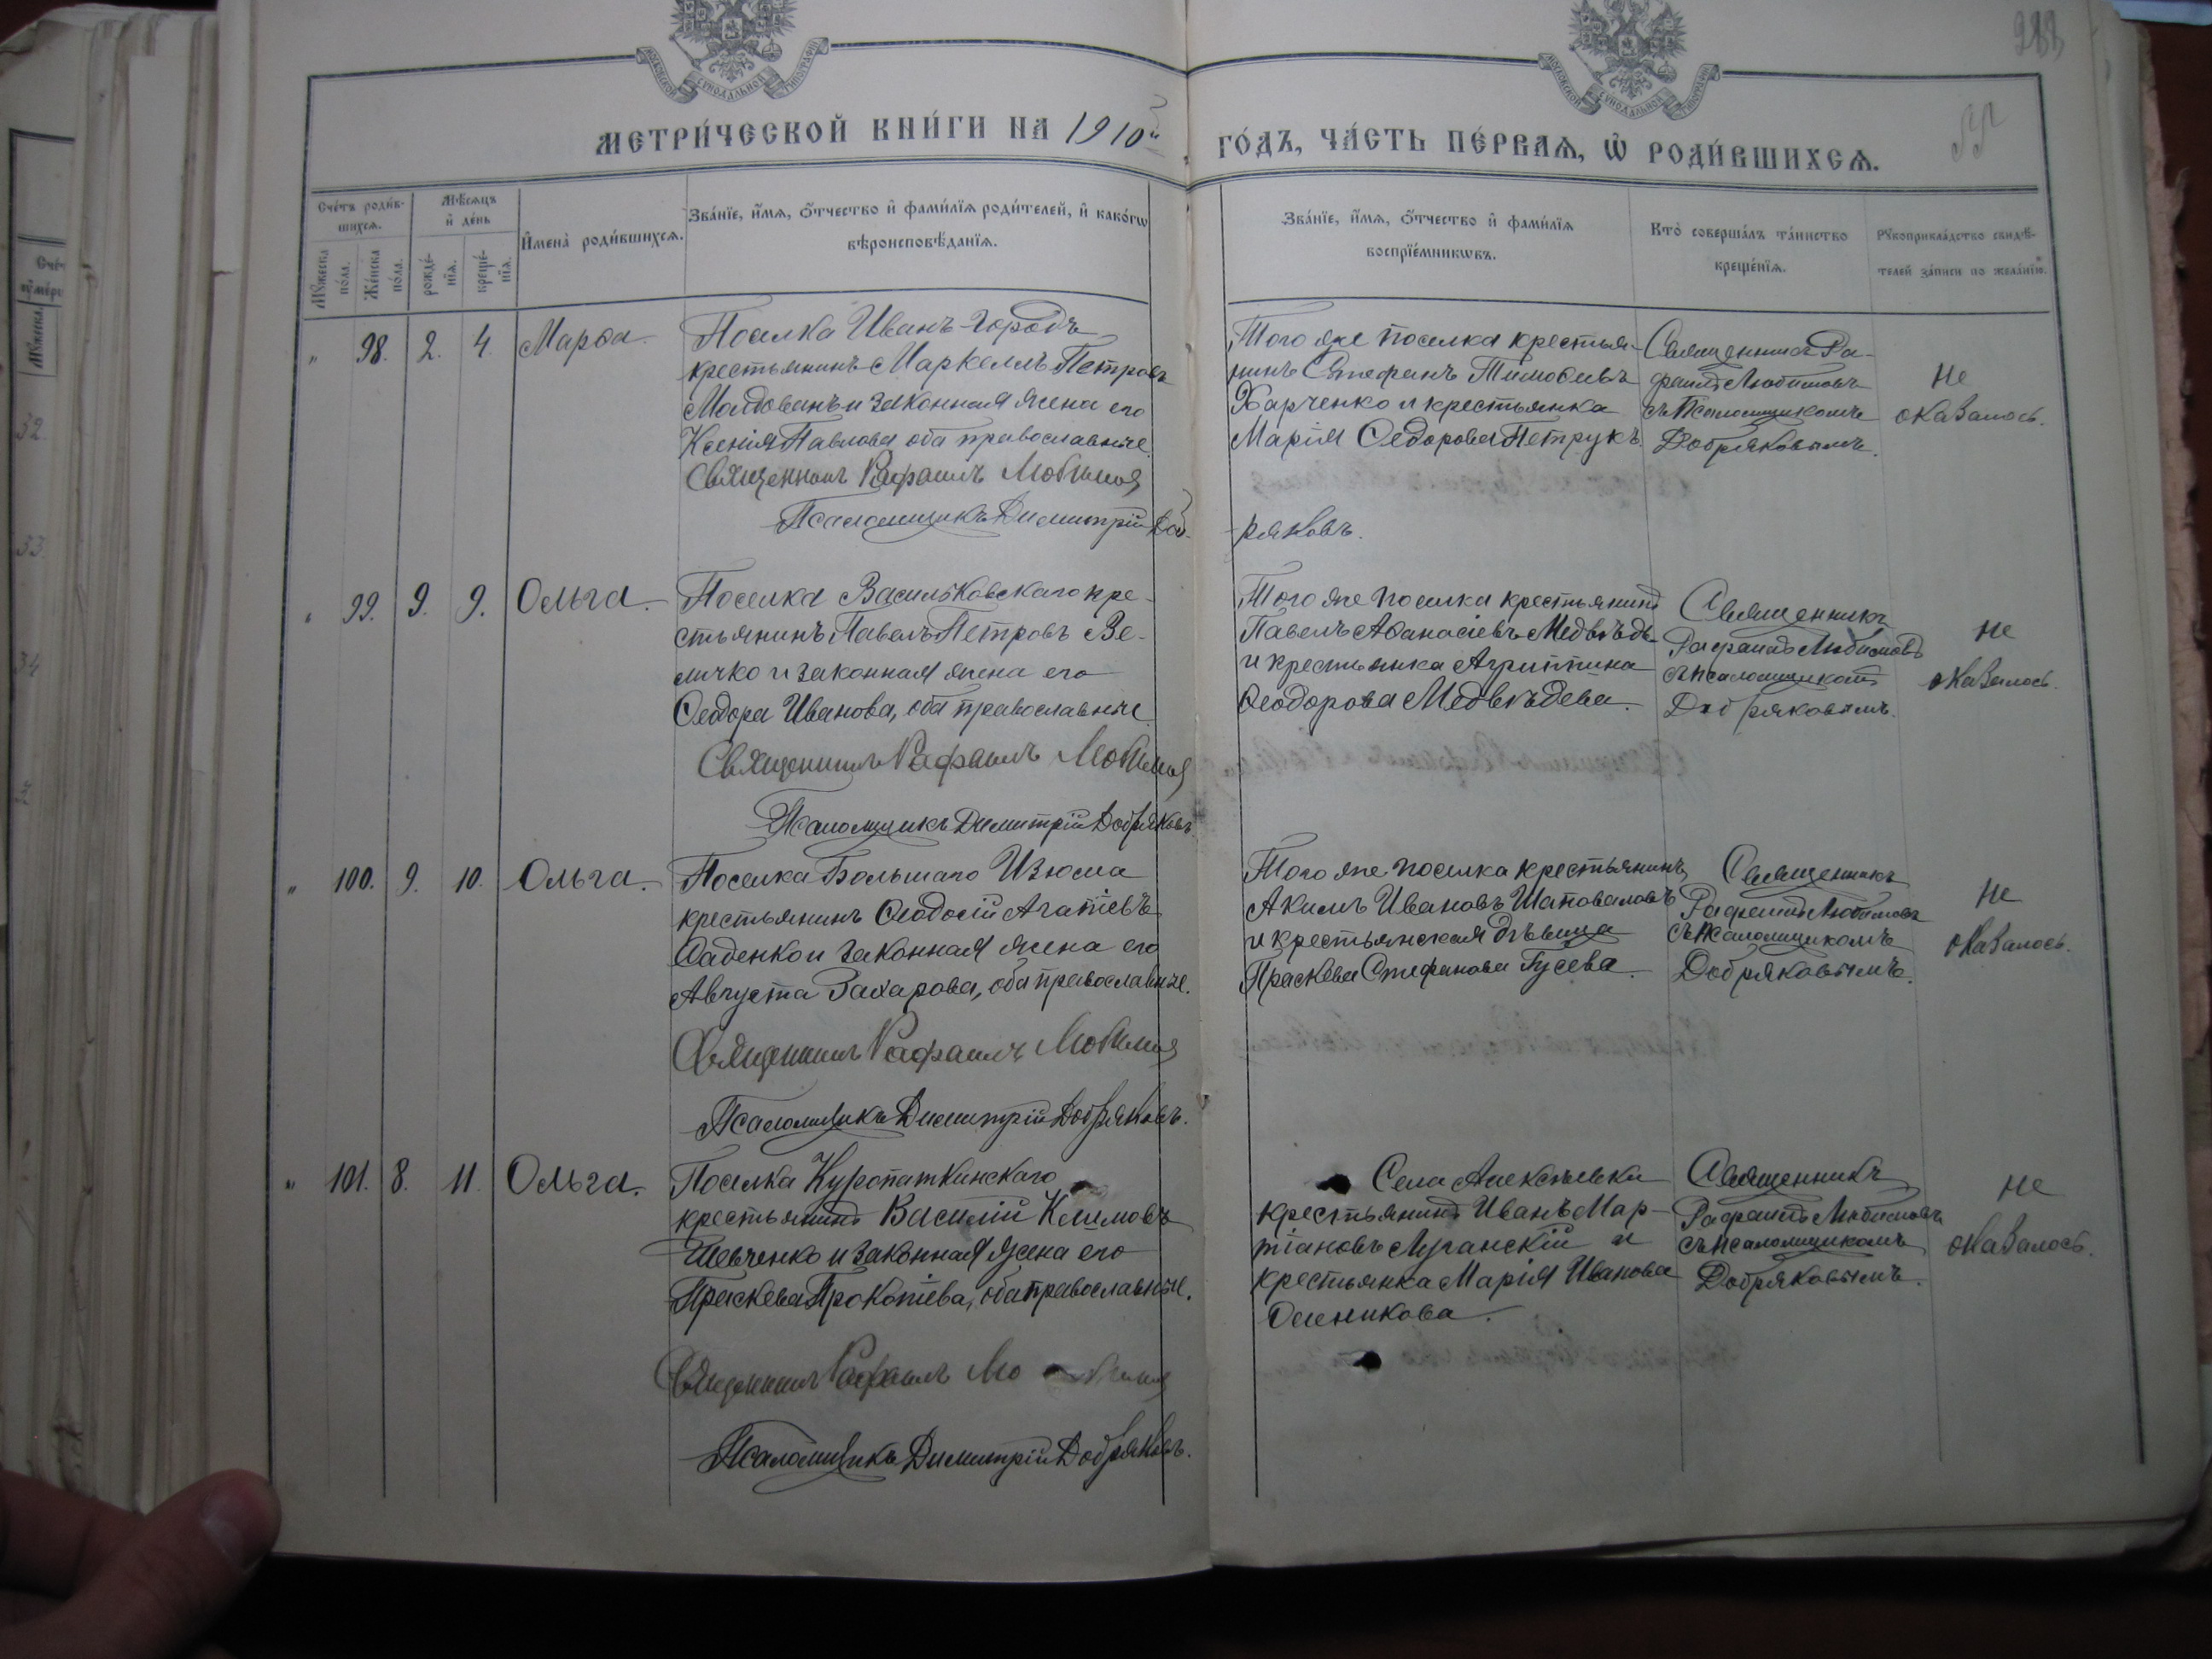 МОСКОВСКОЙ СѴНОДАЛЬНОЙ ТИПОГРАФІИ
МОСКОВСКОЙ СѴНОДАЛЬНОЙ ТИПОГРАФІИ
МЕТРИ́ЧЕСКОЙ КНИ́ГИ НА 1910й
ГО́ДЪ, ЧА́СТЬ ПЕ́РВАѦ, Ѡ҆ РОДИ́ВШИХСѦ.
Сче́тъ роди́в-
шихсѧ.
Мꙋ́жеска по́ла.
Же́нска по́ла.
Мѣ́сѧцъ
и҆ де́нь
рожде́-
нїѧ.
креще́-
нїѧ.
И҆мена̀ роди́вшихсѧ.
Зва́нїе, и҆́мѧ, ѻ҆́тчество и҆ фами́лїѧ роди́телей, и҆ како́гѡ
вѣроисповѣ́данїѧ.
Зва́нїе, и҆́мѧ, ѻ҆́тчество и҆ фами́лїѧ
воспрїе́мникѡвъ.
Кто̀ соверша́лъ та́инство
креще́нїѧ.
Рꙋкоприкла́дство свидѣ́-
телей за́писи по жела́нїю.
" 98. 2. 4. Марѳа.
Поселка Иванъ-Городъ
крестьянинъ Маркеллъ Петровъ
Молдованъ и законная жена его
Ксенія Павлова оба православные.
Священникъ Рафаилъ Любимов
Псаломщикъ Димитрій Доб-
Того же поселка крестья-
нинъ Стефанъ Тимоѳеевъ
Харченко и крестьянка
Марія Ѳедорова Петрукъ.
ряковъ.
Священникъ Ра-
фаилъ Любимовъ
съ псаломщикомъ
Добряковымъ.
Не
оказалось.
" 99. 9. 9. Ольга.
Поселка Васильковскаго кре-
стьянинъ Павелъ Петровъ Ве-
личко и законная жена его
Ѳеодора Иванова, оба православные.
Священникъ Рафаилъ Любимов
Псаломщикъ Димитрій Добряковъ
Того же поселка крестьянинъ
Павелъ Аѳанасіевъ Медвѣдь
и крестьянка Агриппина
Ѳеодорова Медвѣдева.
Священникъ
Рафаилъ Любимовъ
съ псаломщикомъ
Добряковымъ.
Не
оказалось.
" 100. 9. 10. Ольга.
Поселка Большаго Изюма
крестьянинъ Ѳеодосій Агапіевъ
Фаденко и законная жена его
Августа Захарова, оба православные.
Священникъ Рафаилъ Любимов
Псаломщикъ Димитрій Добряковъ.
Того же поселка крестьянинъ
Акимъ Ивановъ Шаповаловъ
и крестьянская дѣвица
Праскева Стефанова Гусева.
Священникъ
Рафаилъ Любимовъ
съ псаломщикомъ
Добряковымъ.
Не
оказалось.
" 101. 8. 11. Ольга.
Поселка Куропаткинскаго
крестьянинъ Василій Климовъ
Шевченко и законная жена его
Праскева Прокопіева, оба православные.
Священникъ Рафаилъ Любимов
Псаломщикъ Димитрій Добряковъ.
Села Алексѣевки
крестьянинъ Иванъ Мар-
тіановъ Луганскій и
крестьянка Марія Иванова
Священникъ
Рафаилъ Любимовъ
съ псаломщикомъ
Добряковымъ.
Не
оказалось.